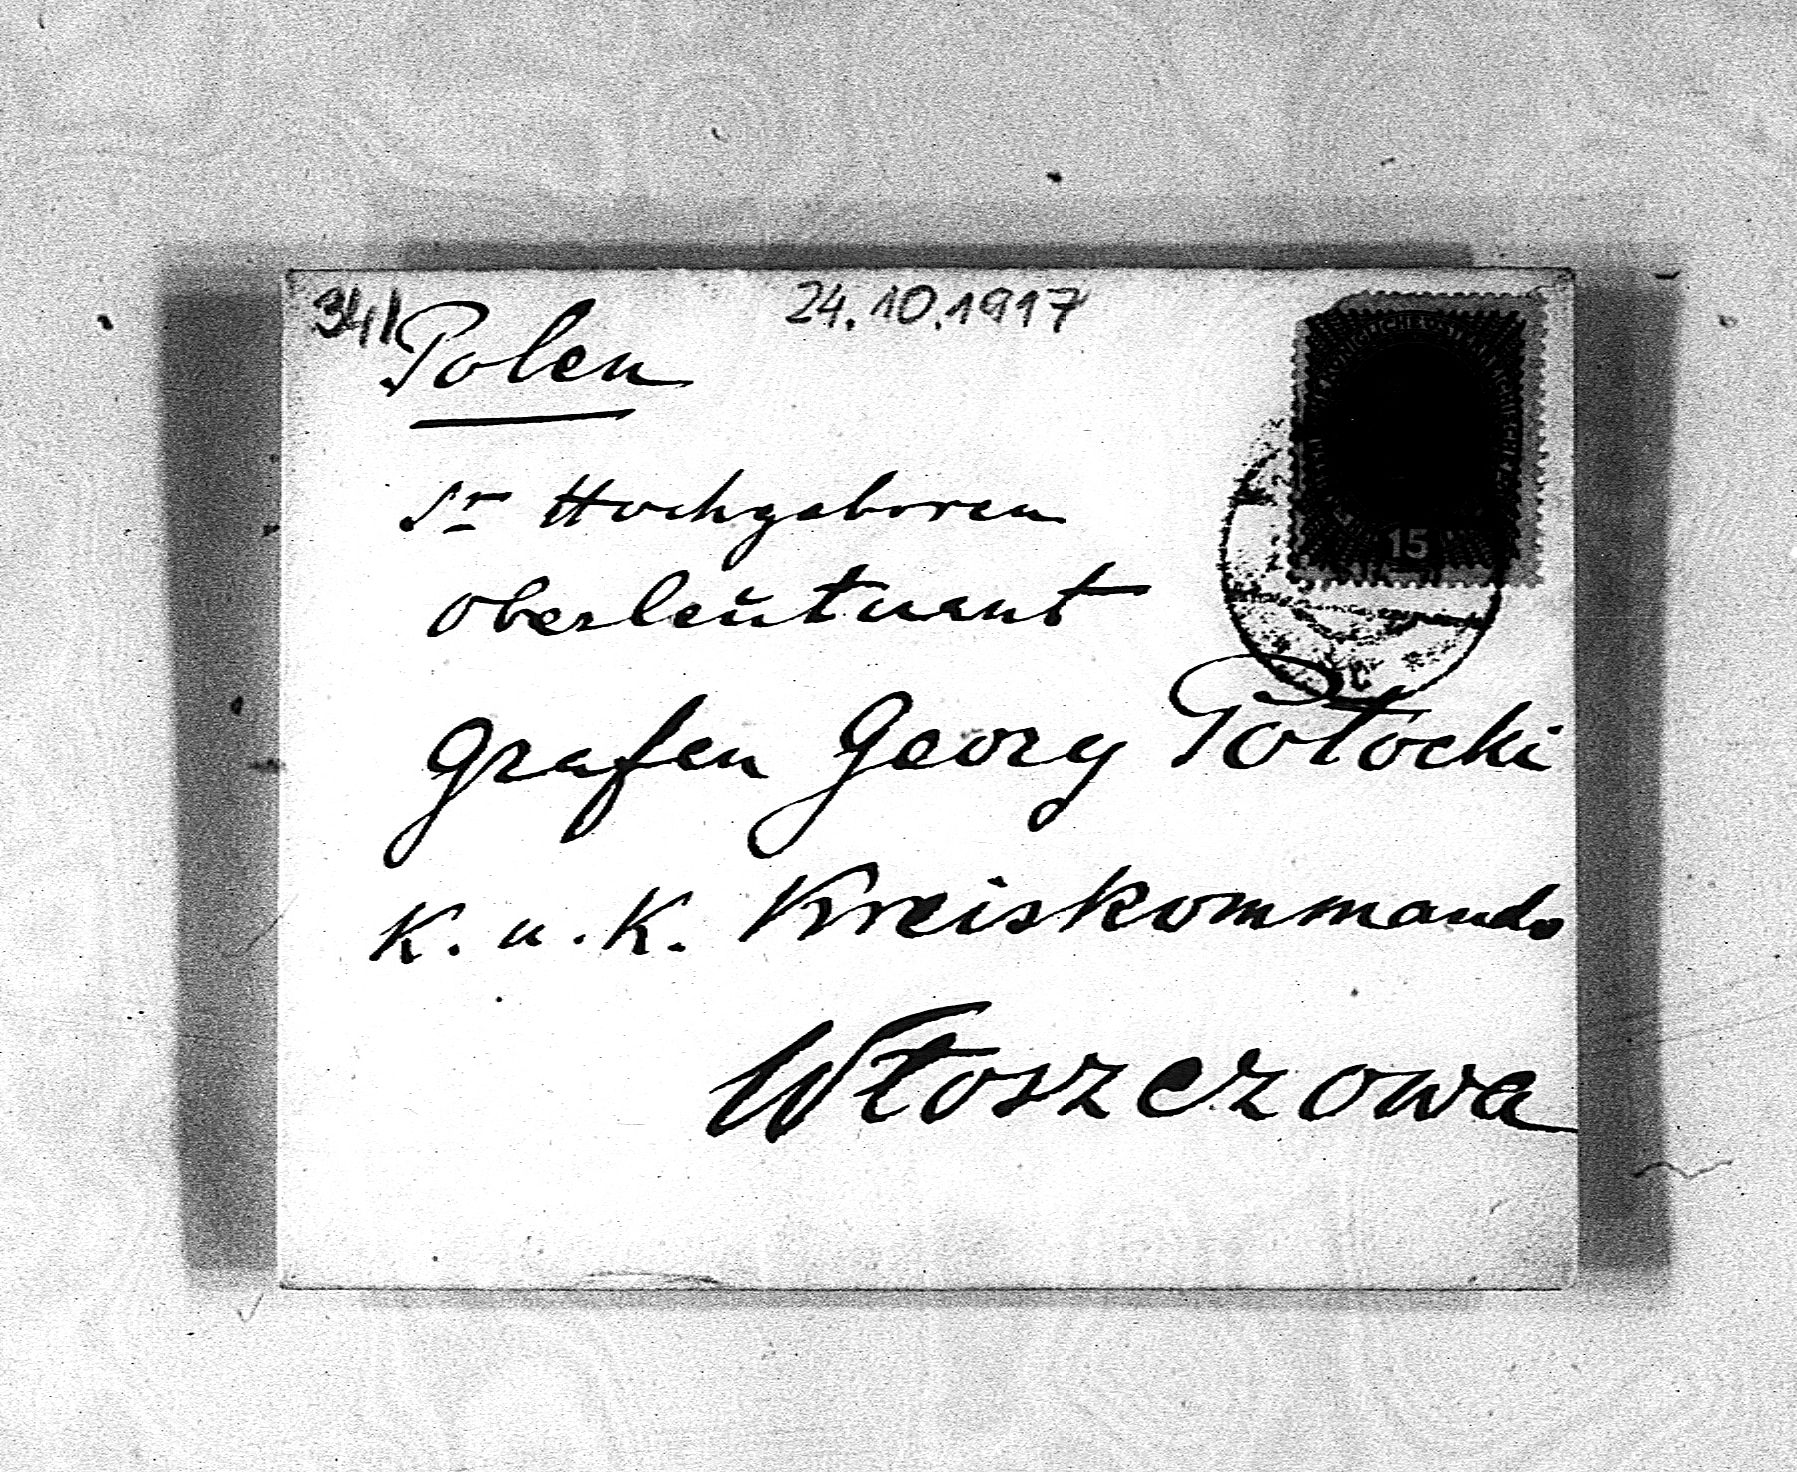 34/
24.10.1917
Polen
Sr Hochgeboren
Oberleutnant
Grafen Georg Potocki
K. u. K. Kreiskommando
Włoszczowa
15